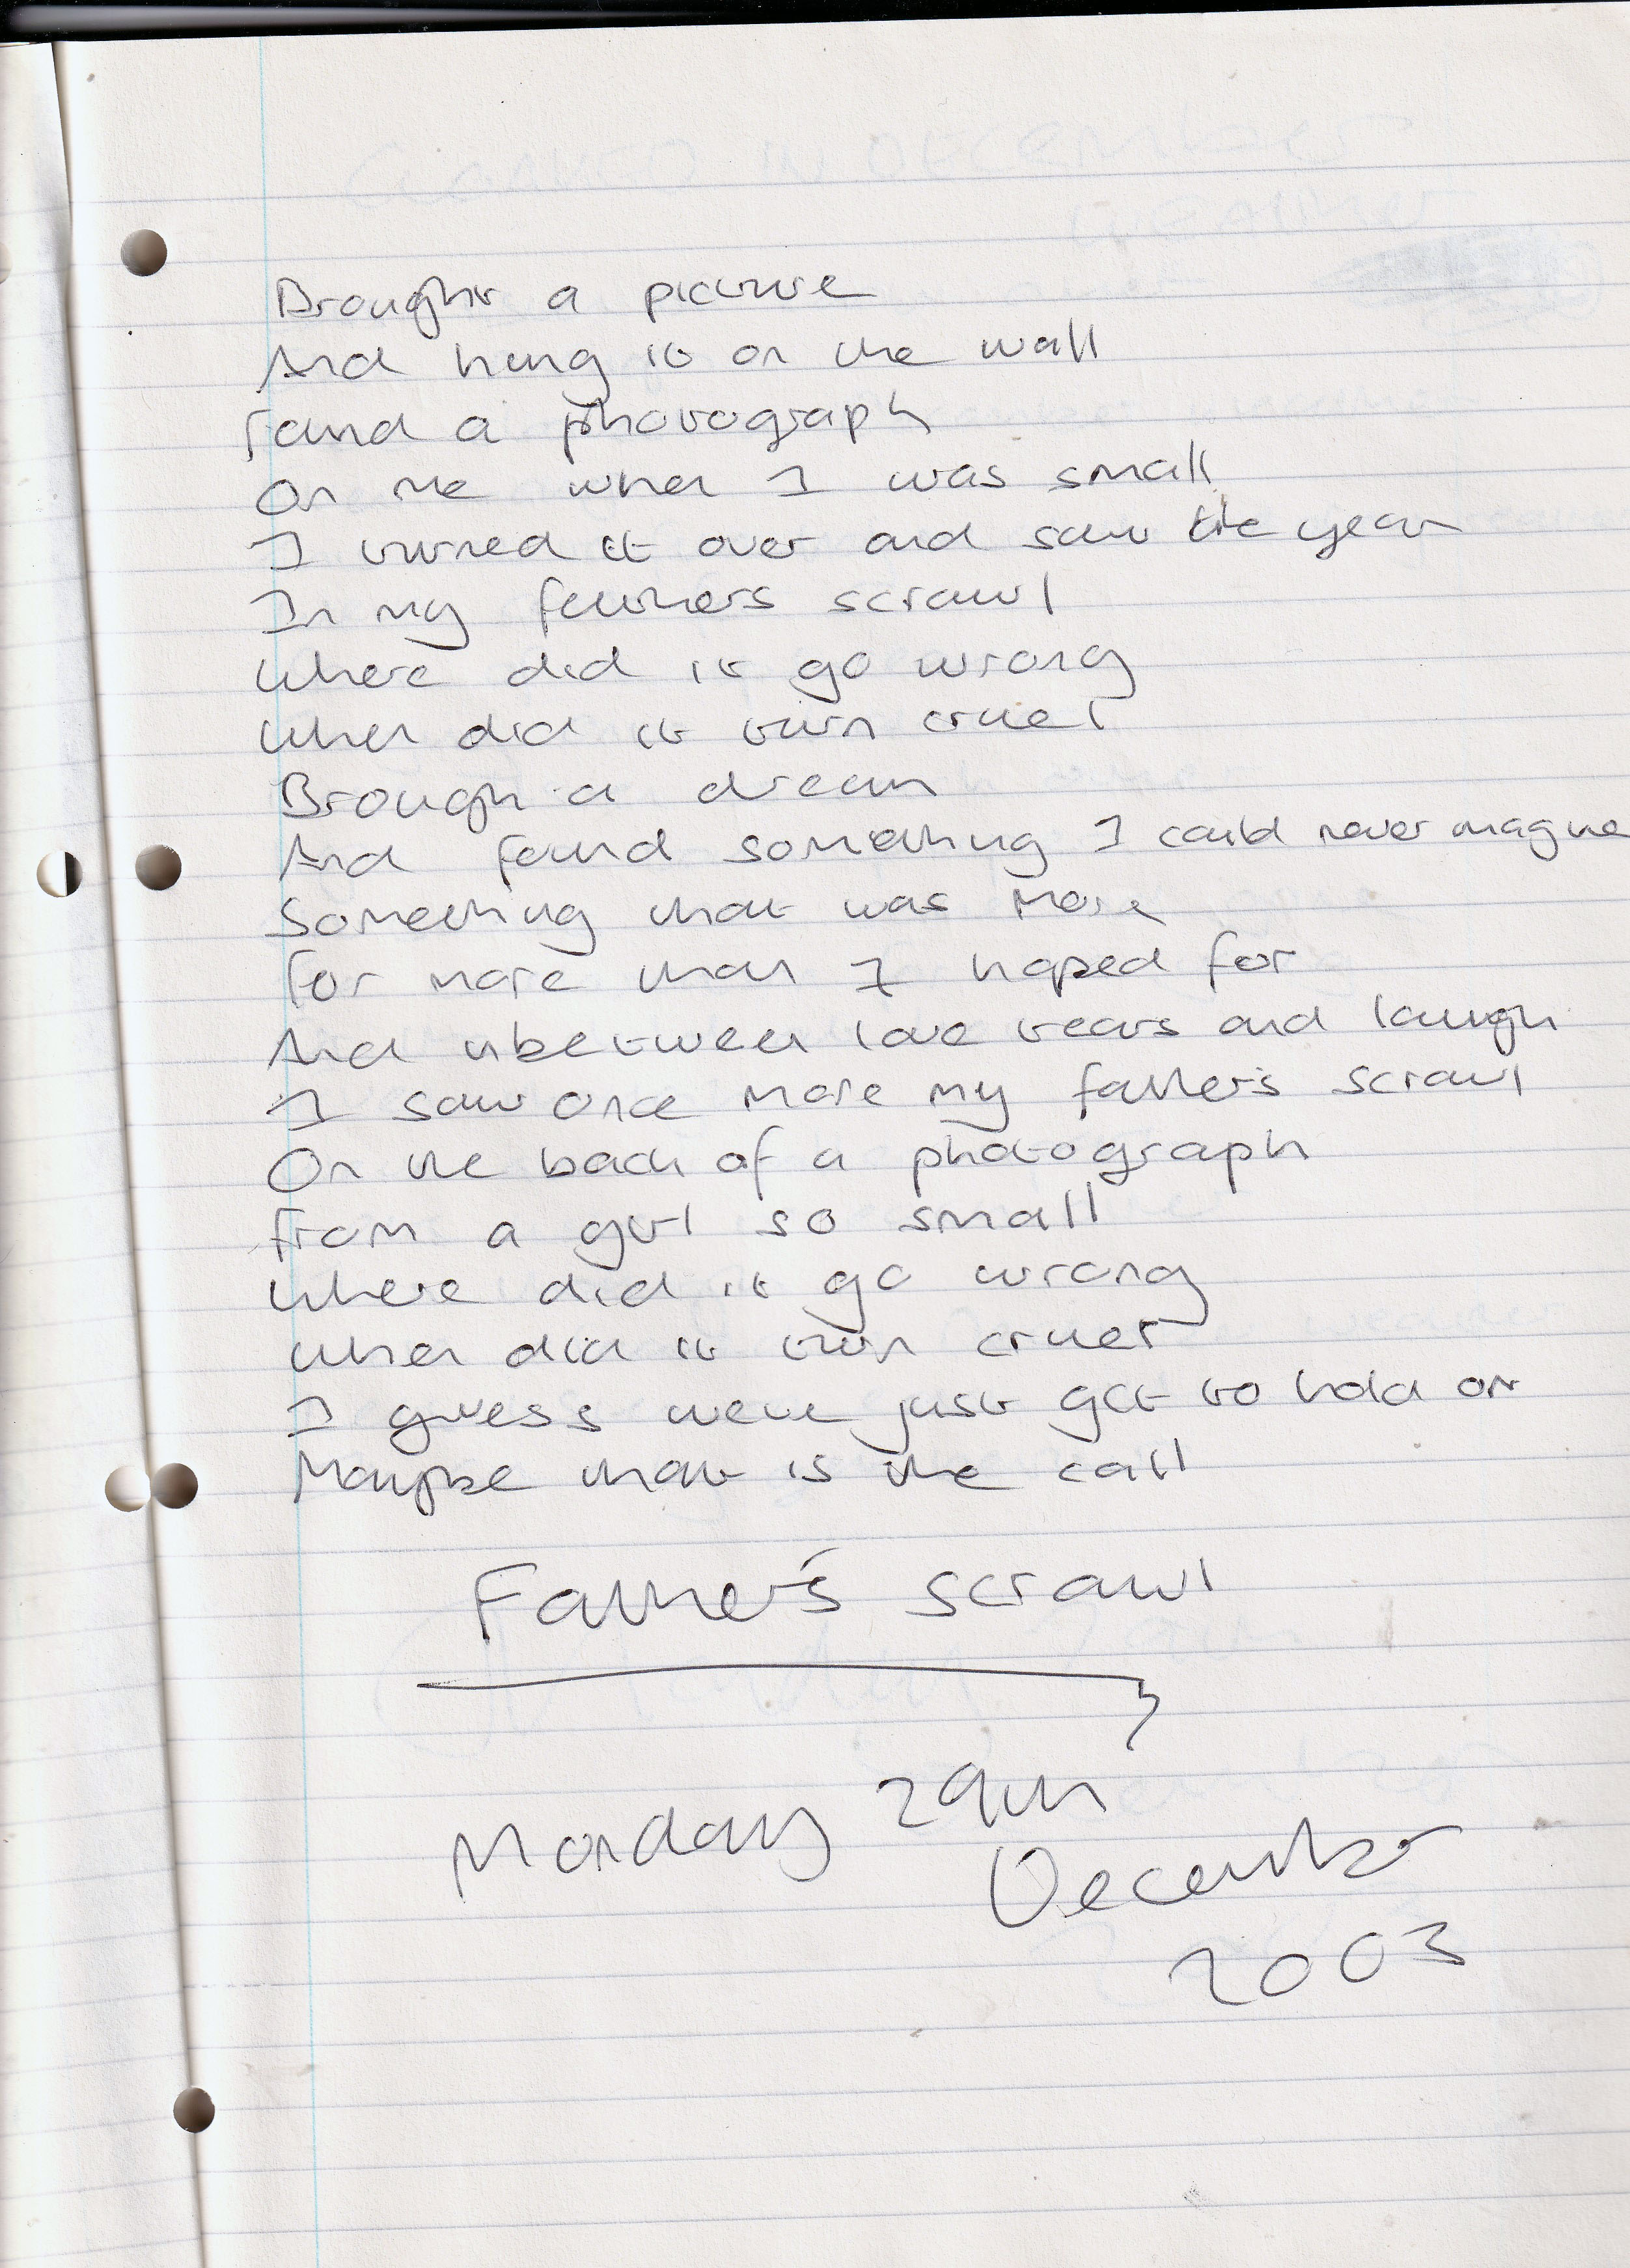 Brought a picture
And hung it on the wall
Found a photograph
On me when I was small
I turned it over and saw the year
In my fathers scrawl
Where did it go wrong
When did it turn cruel
Brough a dream
And found something I could never imagine
Something that was more
For more than I hoped for
And inbetween love tears and laugh
I saw once more my father's scrawl
On the back of a photograph
From a girl so small
Where did it go wrong
When did it turn cruel
I guess weve just got to hold on
Maybe that is the call
Father's scrawl
Monday 29th
December
2003